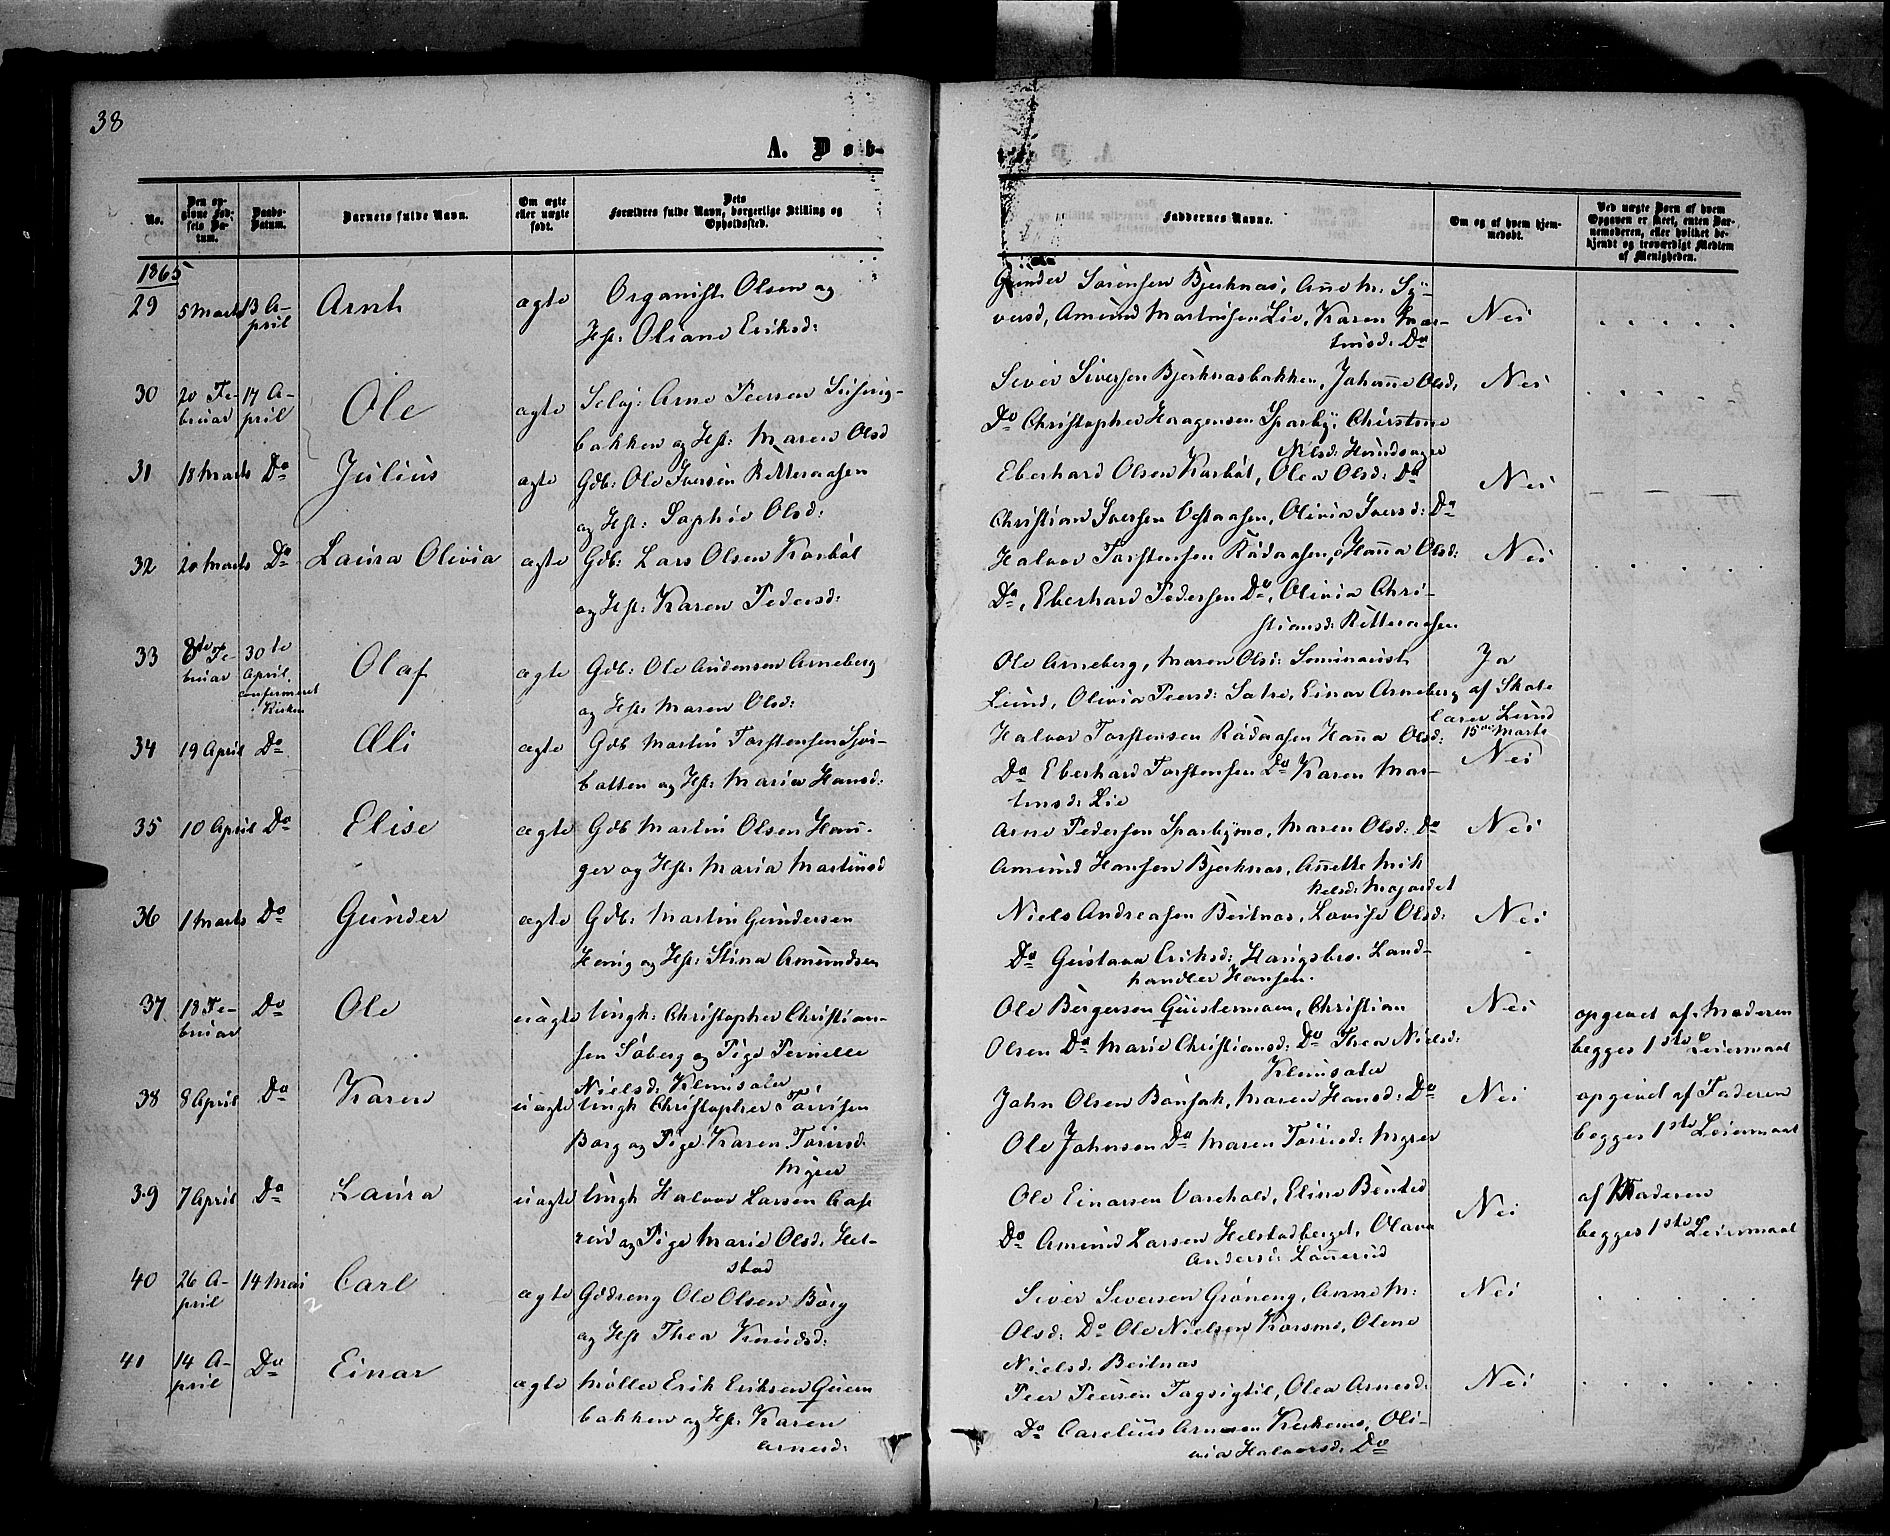 38
A. Døb-
No.
Den op-
givne Fød-
sels Da-
tum.
Daabs-
Datum.
Barnets fulde Navn.
Om ægte
eller uægte
født.
Dets
Forældres fulde Navn, borgerlige Stilling og
Opholdssted.
Faddernes Navne.
Om og af hvem hjem-
medøbt.
Ved uægte Børn af hvem
Opgaven er skeet, enten Bar-
nemoderen, eller hvilket be-
kjendt og troværdigt Medlem
af Menigheden.
1865
29 5 Marts 13 A-
pril
Arnt ægte Organist Olsen og
Hst: Oliane Eriksd:
Gunder Sørensen Bjerknæs, Anne M. Sy-
versd, Amund Martinsen Lie, Karen Mar-
tinsd: Do
Nei
30 20 Fe-
bruar
17 A-
pril
Ole ægte Selvj: Arne Peersen
bakken og Hst: Maren Olsd
Siver Siversen Bjerknæsbakken, Johanne Olsd,
Do Christopher Haagensen Sparby, Christine
Nilsd: Hundsager
Nei
31 18 Marts Do Julius ægte Gdb: Ole Iversen Ritteraasen
og Hst: Sophie Olsd:
Eberhard Olsen Karbøl, Olea Olsd: Do
Christian Iversen Østaasen, Olivia Iversd: Do
Nei
32 20 Marts Do Laura Olivia ægte Gdb: Lars Olsen Karbøl
og Hst: Karen Pedersd:
Halvor Torstensen Rødaasen, Hanna Olsd:
Do, Eberhard Pedersen Do, Olivia Chri-
stiansd: Ritteraasen
Nei
33 8de Fe-
bruar
30te
April
confirmeret
i Kirken
Olaf ægte Gdb: Ole Andersen Arneberg
og Hst: Maren Olsd:
Ole Arneberg, Maren Olsd: Seminarist
Lund, Olivia Peersd: Sætre, Einar Arneberg
Ja
af Skole
lærer Lund
15de Marts
34 19 April Do Æli ægte Gdb Martin Torstensen
batten og Hst: Maria Hansd:
Halvor Torstensen Rødaasen Hanna Olsd:
Do Eberhard Torstensen Do Karen Mar-
tinsd: Lie
Nei
35 10 April Do Elise ægte Gdb Martin Olsen Hau-
ger og Hst: Maria Martinsd
Arne Pedersen Sparbymo, Maren Olsd: Do
Amund Hansen Bjerknæs, Annette Mik
kelsd: Mogardet
Nei
36 1 Marts Do Gunder ægte Gdb: Martin Gundersen
Hønig og Hst: Stina Amundsen
Niels Andreasen Beitnæs, Lovise Olsd:
Do Gustava Eriksd: Land-
handler Hansen.
Nei
37 18 Fe-
bruar
Do Ole uægte Ungk: Christopher Christian-
sen Søberg og Pige Pernille
Nielsd: Klemsæter
Ole Børgersen Gustermoen, Christian
Olsen Do Marie Christiansd: Do Thea Nielsd:
Klemsæter
Nei
opgivet af Moderen
begges 1ste Leiermaal
38 8 April Do Karen uægte Ungk Christopher Torrisen
Borg og Pige Karen Torrisd:
Myrer
John Olsen Bonsak, Maren Hansd: Do
Ole Johnsen Do Maren Torrisd: Myrer
Nei
opgivet af Faderen
begges 1ste Leiermaal
39 7 April Do Laura uægte Ungk Halvor Larsen Aase
rud og Pige Marie Olsd: Hel-
stad
Ole Einarsen Varehold, Eline Bentsd
Do Amund Larsen Helstadberget, Olava
Andersd: Lønnerud
Nei
af Moderen
begges 1ste Leiermaal
40 26 A-
pril
14 Mai
Carl ægte Gddreng Ole Olsen Borg
og Hst Thea Knudsd:
Siver Siversen Grøneng, Anne M:
Olsd: Do Ole Nielsen Karsmo, Olene
Nielsd: Beitnæs
Nei
41 14 A-
pril
Do Einar ægte Møller Erik Eriksen
bakken og Hst: Karen
Arnesd:
Peer Peersen Fagsigtil, Olea Arnesd:
Do Carelius Arnesen Kirkemo, Oli-
via Halvorsd: Do
Nei